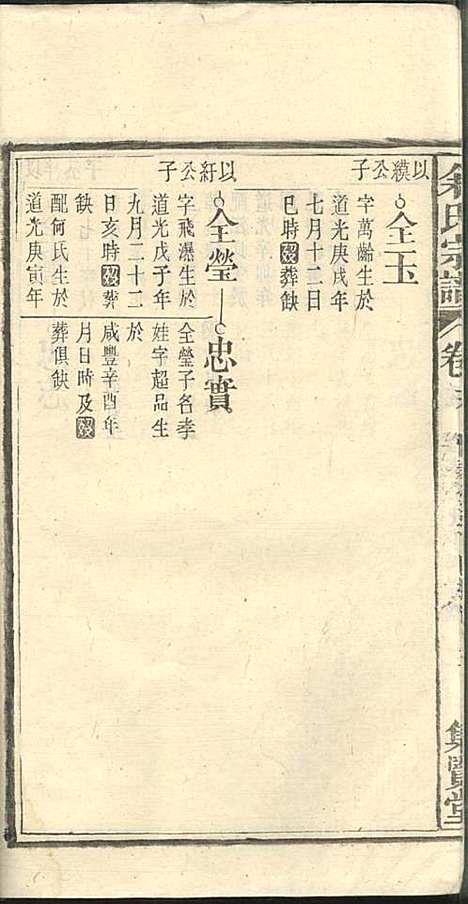 以䊟公子
全玉
字萬齡生於
道光庚戌年
七月十二日
巳時歿葬缺
以紆公子
全瑩
字飛瀑生於
道光戊子年
九月二十二
日亥時歿葬
缺
配何氏生於
道光庚寅年
忠實
全瑩子名孝
姓字超品生
於
咸豐辛酉年
月日時及歿
葬俱缺
氏宗譜
卷
集賢堂